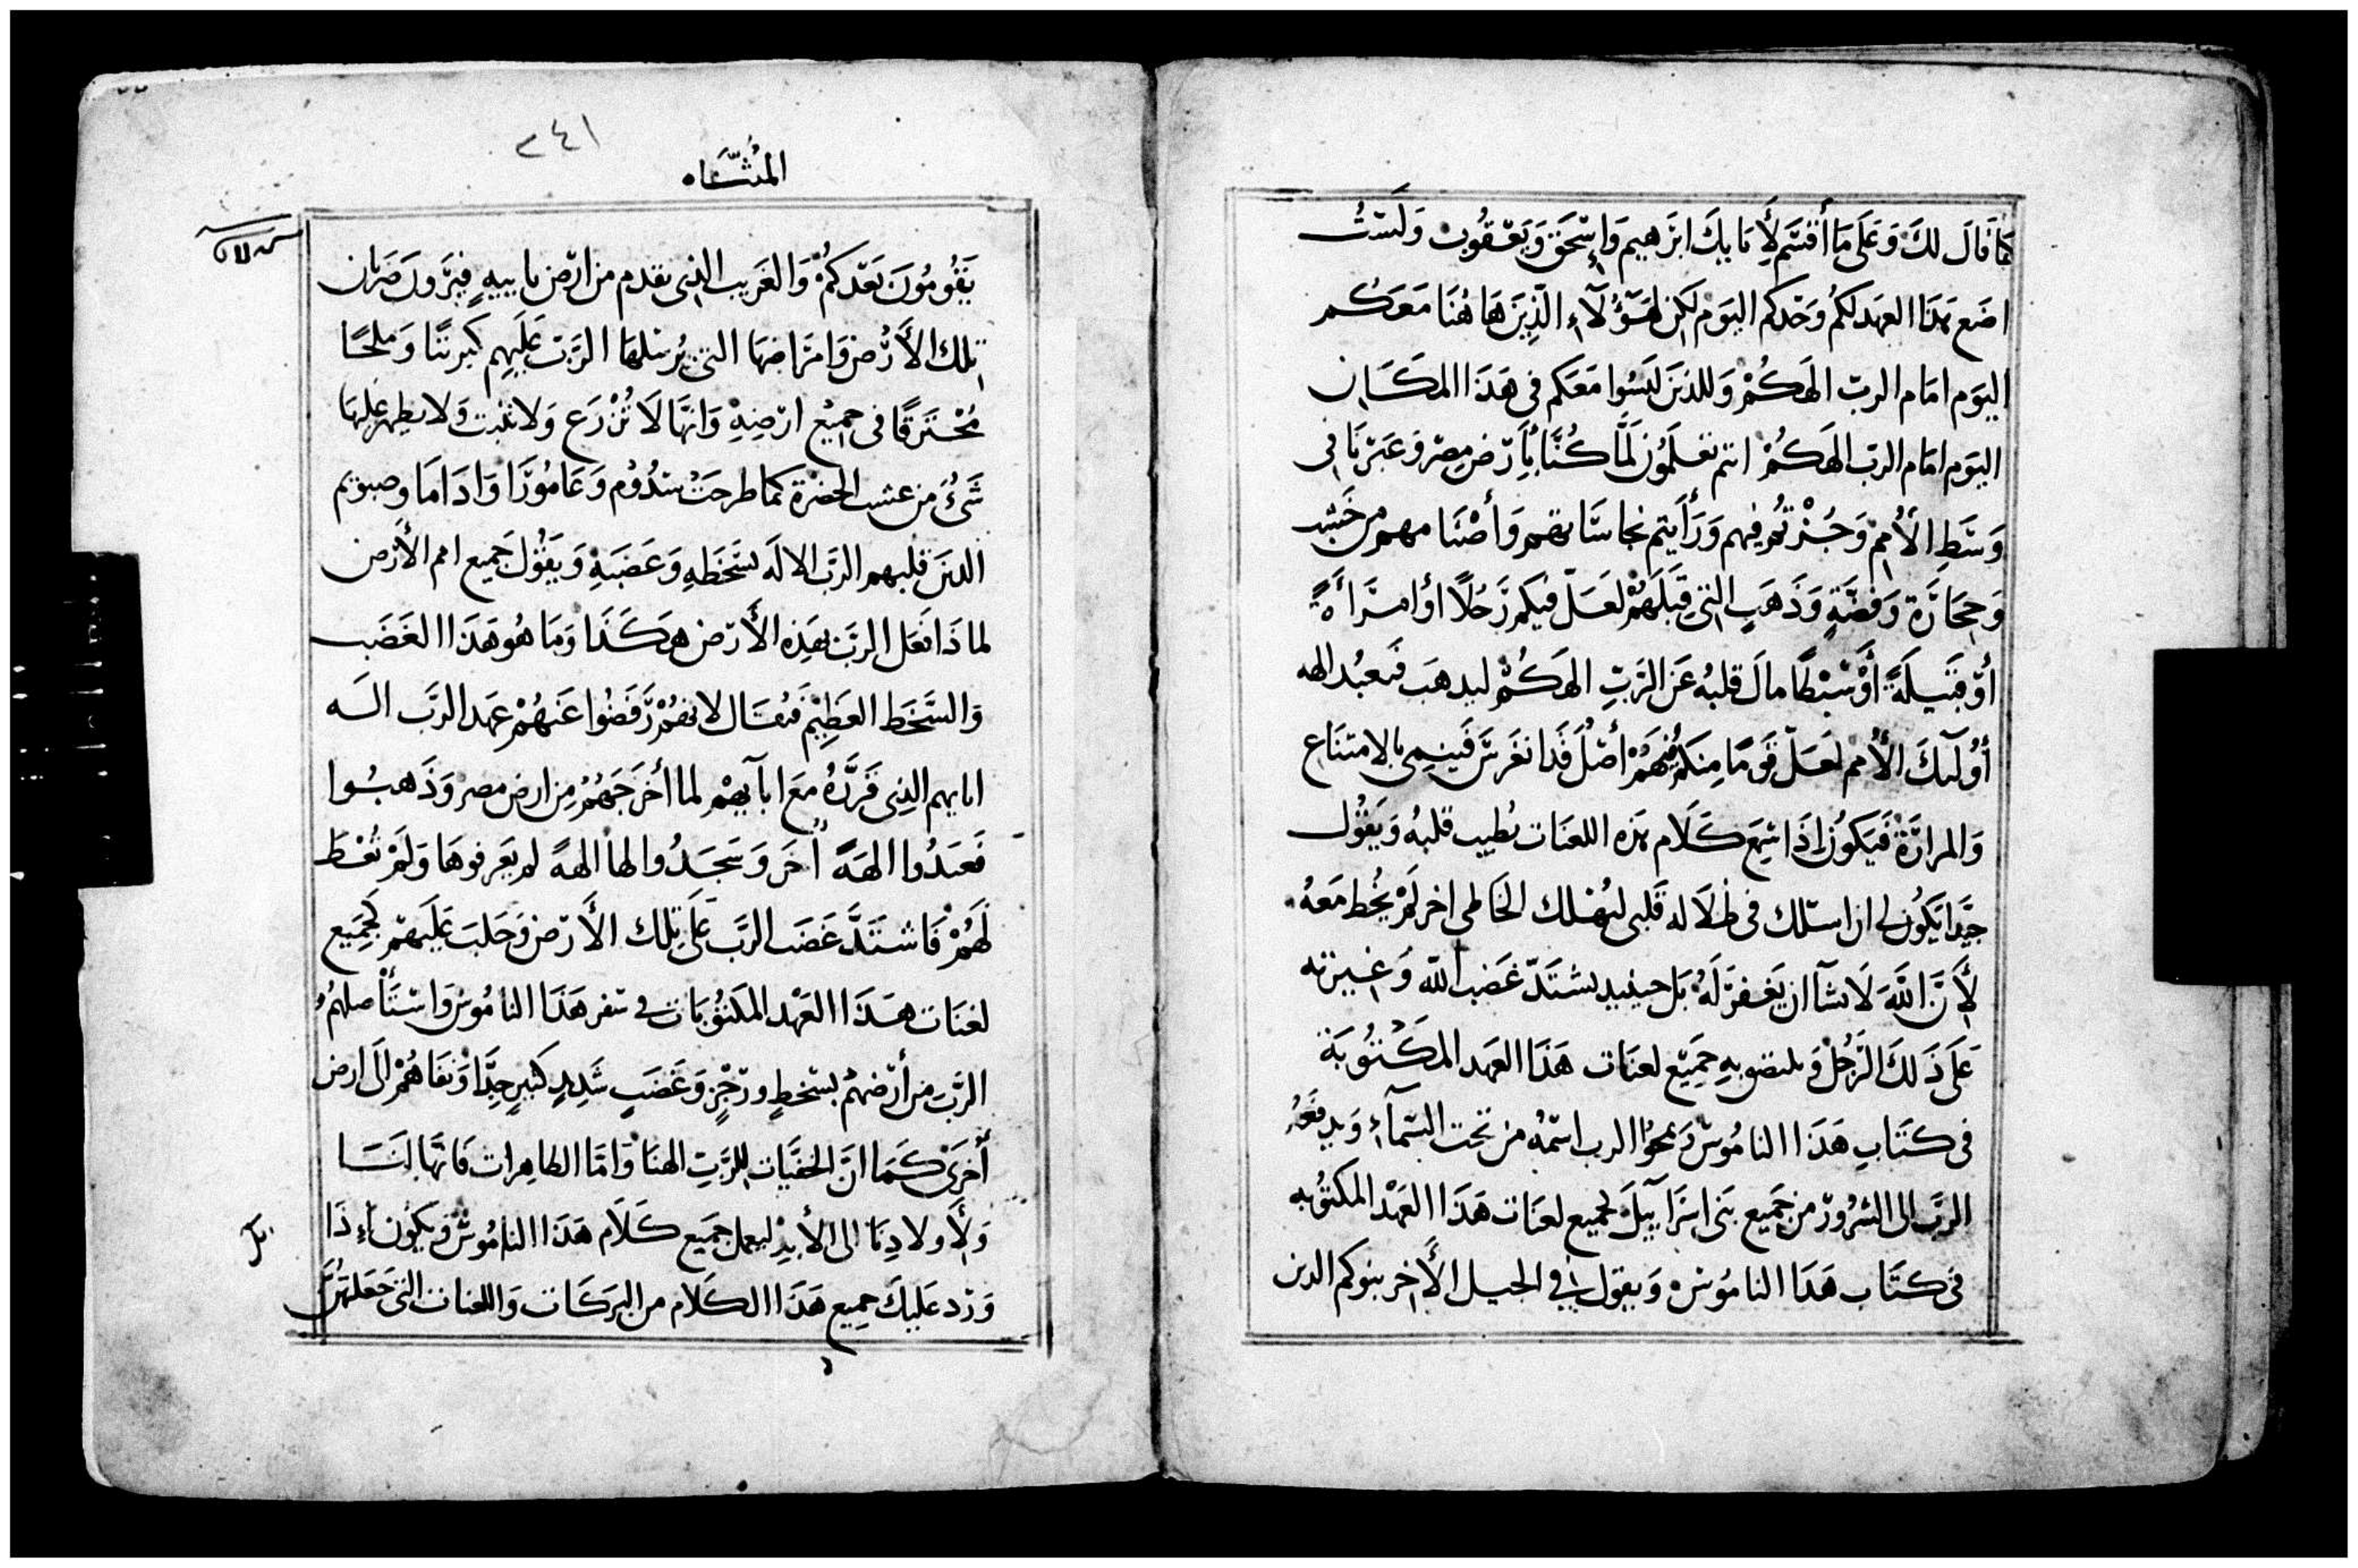 كما قال لك وعلى ما أقسم لأبايك ابرهيم وإسحق ويعقوب ولست
اضع هذا العهد لكم وحدكم اليوم لكن لهؤلآء الذين هاهنا معكم
اليوم امام الرب الهكم وللذين ليسوا معكم فى هذا المكان
اليوم امام الرب الهكم انتم تعلمون لما كنا بأرض مصر وعبرنا فى
وسط الأمم وجزتم فيهم ورأيتم نجاساتهم وأصنامهم من خشب
وحجارة وفضة وذهب التي قبلهم لعل فيكم رجلا او امرأة
أو قبيلة أو سبطا مال قلبه عن الرب الهكم ليدهب فيعبد الهه
أولايك الأمم لعل قوما منكم فيهم أصل قد انغرس فينمى بالامتناع
والمرارة فيكون إذا سمع كلام هذه اللعنات يطيب قلبه ويقول
جيدا يكون لى ان اسلك فى ظلاله قلبى ليهلك الخاطى اخر لم يخط معه
لأن الله لا يشآ ان يغفر له بل حينيد يشتد غضب الله وغيرته
على ذلك الرجل ويلتصق به جميع لعنات هذا العهد المكتوبة
فى كتاب هذا الناموس ويمحوا الرب اسمه من تحت السمآء ويدفعه
الرب الى الشرور من جميع بنى اسرآييل لجميع لعنات هذا العهد المكتوبه
فى كتاب هذا الناموس ويقول فى الجيل الأخر بنوكم الدين
٢٤١
المثناه
يقومون بعدكم والغريب الذى يقدم من ارض نابيه فيرون ضربات
تلك الأرض وامراضها التى يرسلها الرب عليهم كبريتا وملحا
محترقا فى جميع ارضيه وانها لا تزرع ولا تنبت ولا يطهر عليها
شىء من عشب الخضرة كما طرحت سدوم وعامورا وادāما وصبويم
الدين قلبهم الرب الاله بسخطه وغضبه ويقول جميع امم الأرض
لماذا فعل الرب بهذه الأرض هكذا وما هو هذا الغضب
والسخط العظيم فيقال لانهم رفضوا عنهم عهد الرب اله
ابايهم الذى قرره مع ابآيهم لما أخرجهم من ارض مصر وذهبوا
فعبدوا الهة أخر وسجدوا لها الهة لم يعرفوها ولم تعط
لهم فاشتد غضب الرب على تلك الأرض وجلب عليهم لجميع
لعنات هذا العهد المكتوبات فى سفر هذا الناموس واستأصلهم
الرب من أرضهم بسخط ورجز وغضب شديد كبير جدا ونفاهم الى ارض
أخرى كما ان الخفيات للرب الهنا واما الظاهرات فانها لنا
ولأولادنا الى الأبد ليعمل جميع كلام هذا الناموس فيكون إذا
ورد عليك جميع هذا الكلام من البركات واللعنات التى جعلتهن